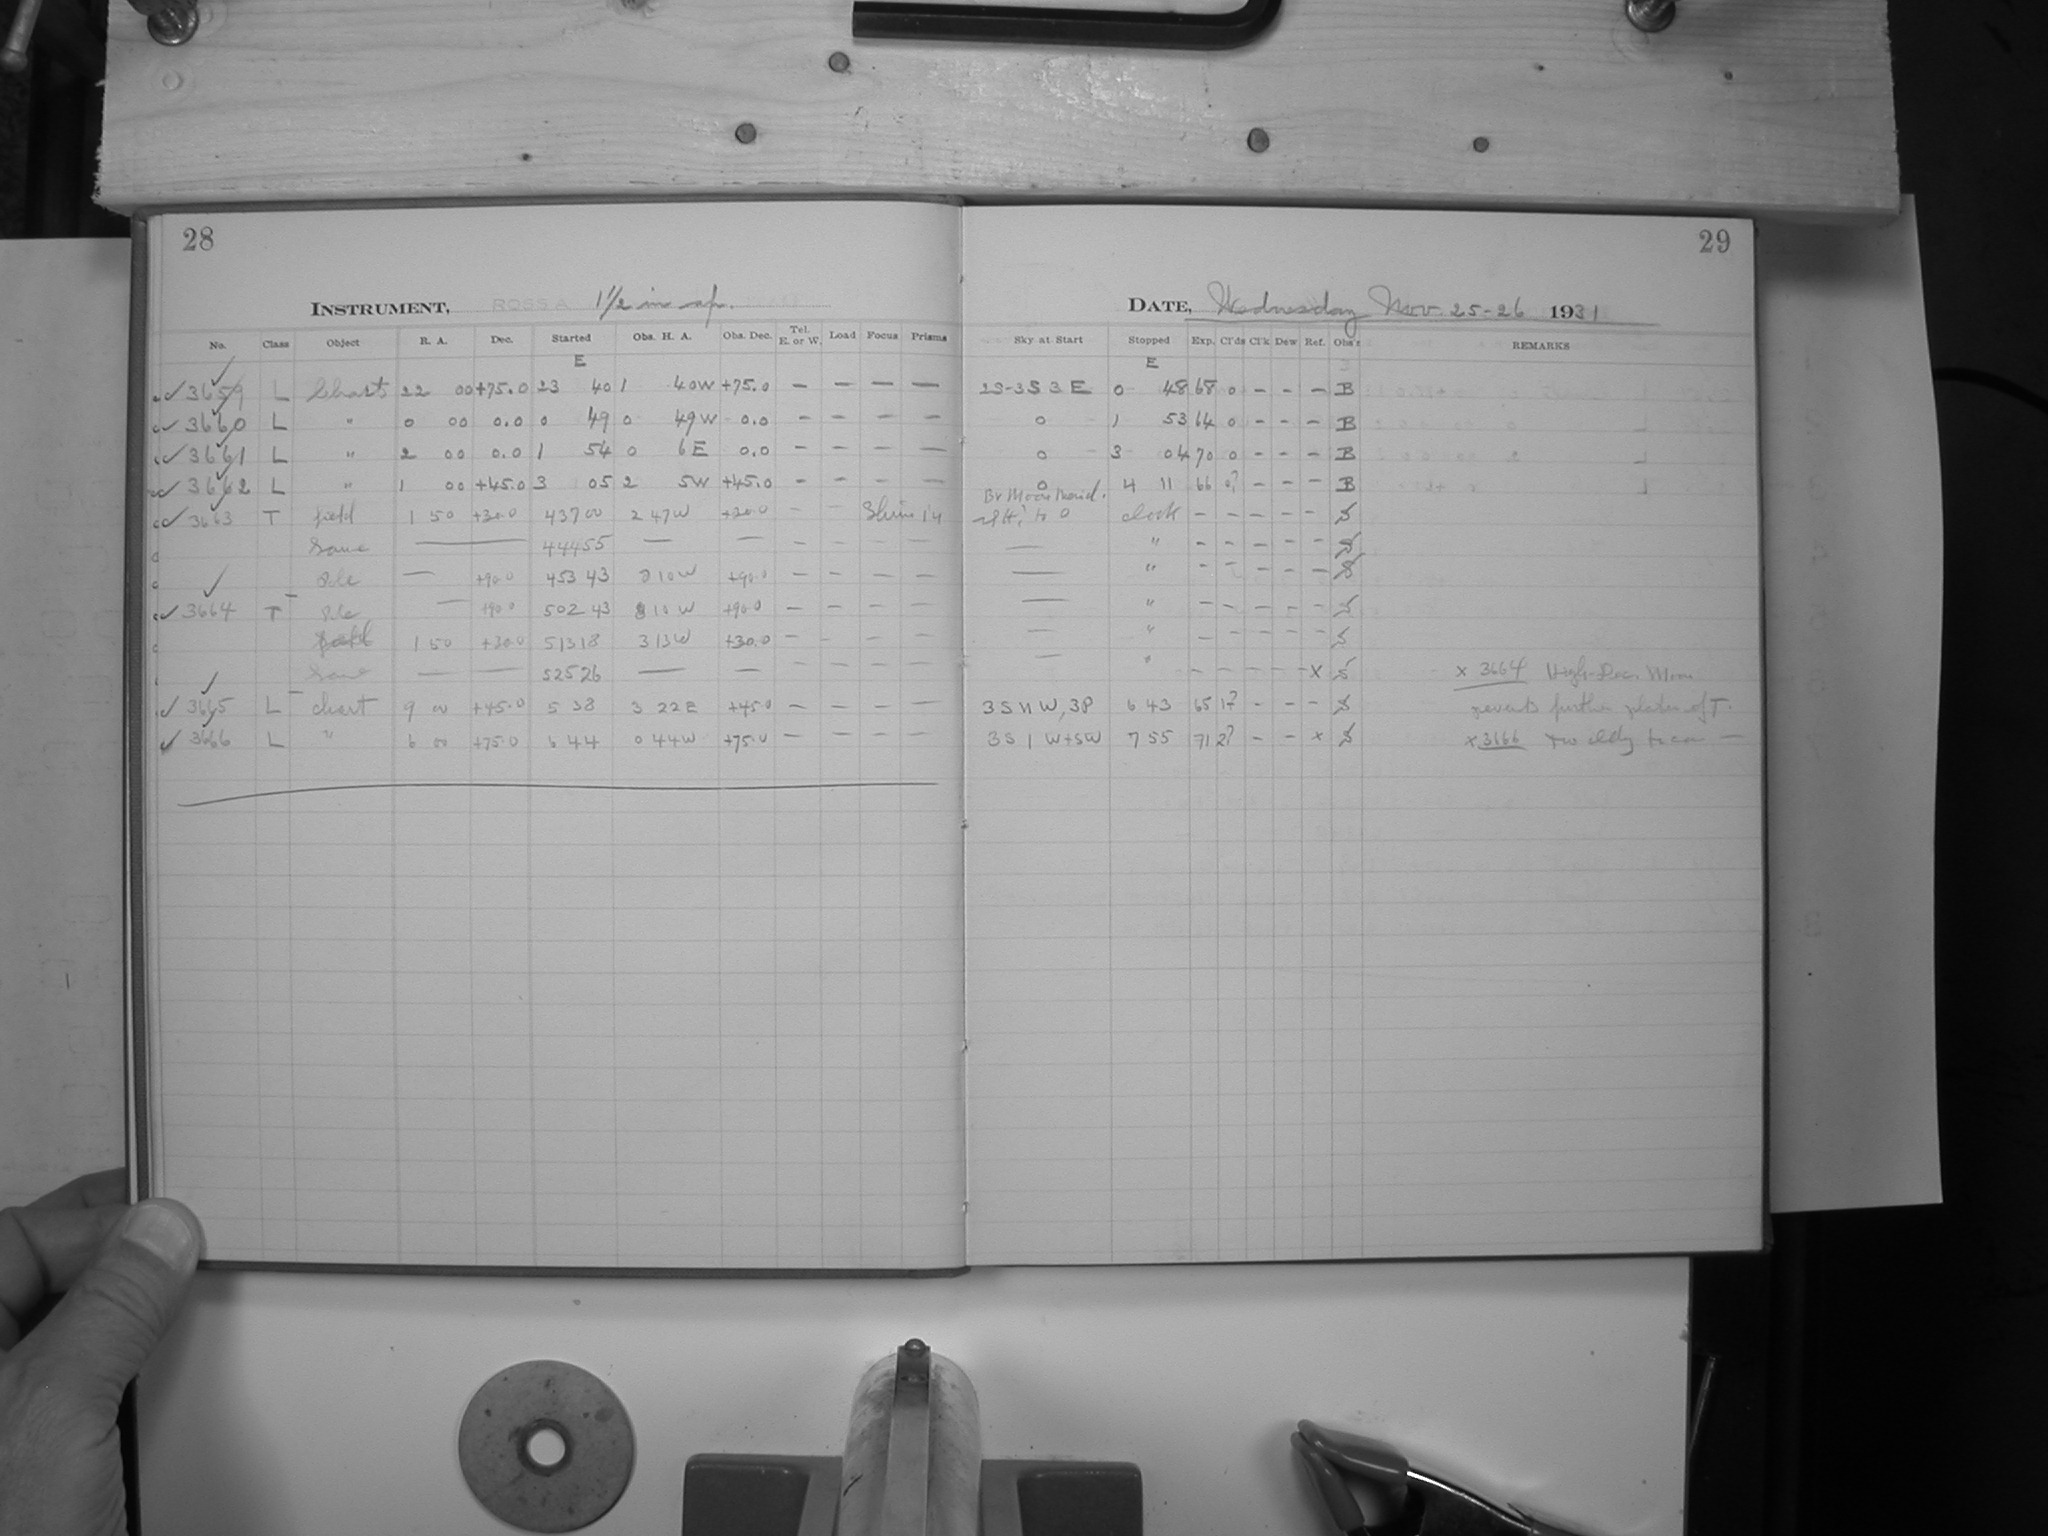 28
INSTRUMENT, ROSS A 1½ in ap.
No. Class Object R. A. Dec. Started Obs. H. A. Obs. Dec. Tel. E. or W. Load Focus Prisms
E
✓ 3659 L Charts 22 00 +75.0 23 40 1 40W +75.0 – – – –
✓ 3660 L " 0 00 0.0 0 49 0 49W 0.0 – – – –
✓ 3661 L " 2 00 0.0 1 54 0 6E 0.0 – – – –
✓ 3662 L " 1 00 +45.0 3 05 2 5W +45.0 – – – –
✓ 3663 T field 1 50 +30.0 43700 2 47W +30.0 – –
Same — 44455 — —
Pole — +90.0 45343 810W +90.0 – – – –
✓ 3664 T Pole — +90.0 50243 810W +90.0 – – – –
field 1 50 +30.0 51318 313W +30.0 – – – –
Same — — 52526 — — – – – –
✓ 3665 L chart 9 00 +45.0 5 38 3 22E +45.0 – – – –
✓ 3666 L " 6 00 +75.0 6 44 0 44W +75.0 – – – –
29
DATE, Wednesday Nov. 25-26 1931
Sky at Start Stopped Exp. Cl'ds Cl'k Dew Ref. Obs'r REMARKS
E
23-3S3E 0 48 68 0 – – – B
0 1 53 64 0 – – – B
0 3 04 70 0 – – – B
0 4 11 66 0? – – – B
Br Moon
to 0 clock – – – – – S
— " – – – – – S
— " – – – – – S
— " – – – – – S
— " – – – – – S
— " – – – – x S x 3664 High-Dec. Moon
3S11W, 3P 6 43 65 1? – – – S prevents further plates of T.
3S1W+SW 7 55 71 2? – – x S x 3666 too cldy to con —